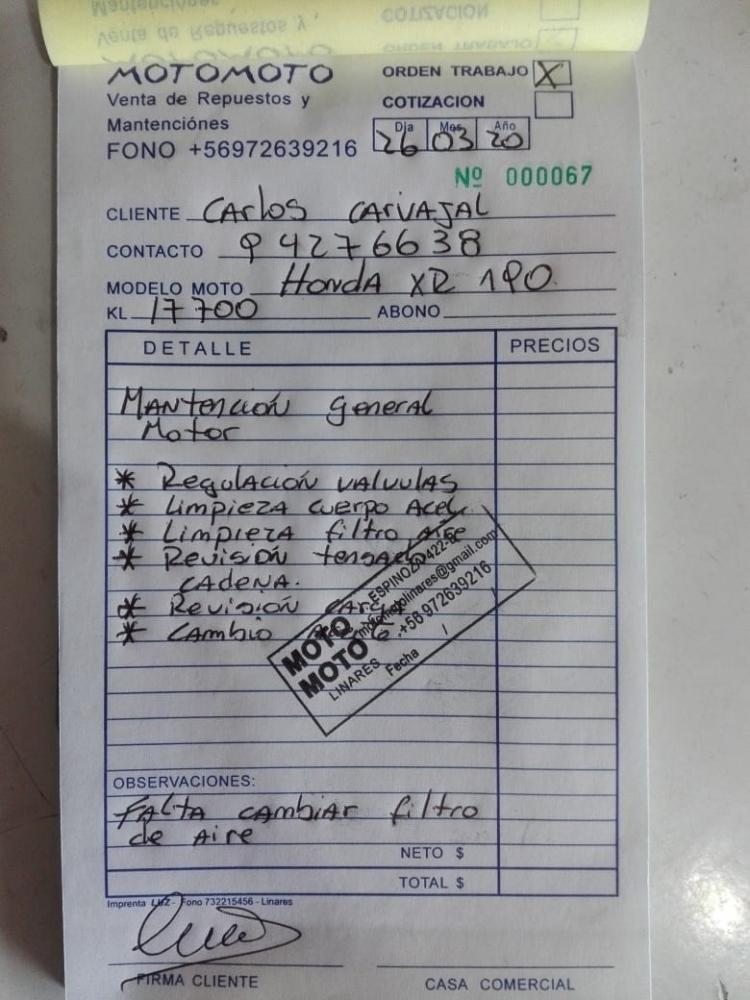 MOTOMOTO
Venta de Repuestos y
Mantenciónes
FONO +56972639216
ORDEN TRABAJO X
COTIZACION
Dia Mes Año
26 03 20
Nº 000067
CLIENTE Carlos Carvajal
CONTACTO 9 4276638
MODELO MOTO Honda XR 190
KL 17700 ABONO
DETALLE PRECIOS
Mantención general
Motor
* Regulación valvulas
* Limpieza cuerpo Acel.
* Limpieza filtro aire
* Revisión
cadena.
* Revisión
* Cambio
ESPINOZA 422-
motomotolinares@gmail.com
MOTO +56 972639216
MOTO
LINARES Fecha / /
OBSERVACIONES:
Falta cambiar filtro
de Aire
NETO $
TOTAL $
Imprenta LUZ - Fono 732215456 - Linares
FIRMA CLIENTE CASA COMERCIAL